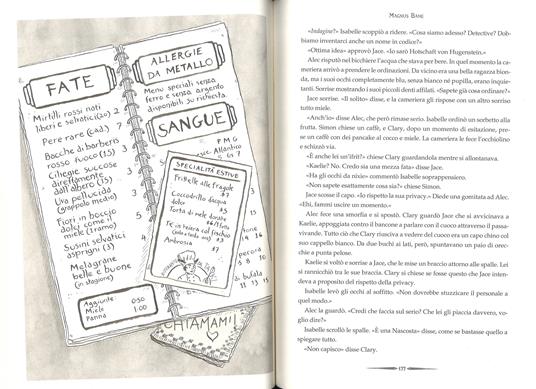 FATE
Mirtilli rossi nati
liberi e selvatici (20) 2
Pere rare (cad.) 7
Bocche di barbero
rosso fuoco (15) 3
Ciliegie succose
direttamente
dall'albero (15) 3
Uva pellucida
(grappolo medio) 3
Fiori in boccio
dolci come il
miele (1 ramo)
Susini selvatici
asprigni (3)
Melagrane
belle e buone
(in stagione)
Aggiunte:
Miele 0:50
Panna 1:00
ALLERGIE
DA METALLO
Menu speciali senza
ferro e senza argento
disponibili su richiesta.
SANGUE
P M G
SPECIALITÀ ESTIVE
Frittelle alle fragole
$7
Coccodrillo acqua
dolce
$5
Torta di mele dorate
Ambrosia
$7
CHIAMAMI!
MAGNUS BANE
«Indagine?» Isabelle scoppiò a ridere. «Cosa siamo adesso? Detective? Dob-
biamo inventarci anche un nome in codice?»
«Ottima idea» approvò Jace. «Io sarò Hotschaft von Hugenstein.»
Alec risputò nel bicchiere l'acqua che stava per bere. In quel momento la ca-
meriera arrivò a prendere le ordinazioni. Da vicino era una bella ragazza bion-
da, ma i suoi occhi completamente blu, senza bianco né pupilla, erano inquie-
tanti. Sorrise mostrando i suoi piccoli denti affilati. «Sapete già cosa ordinare?»
Jace sorrise. «Il solito» disse, e la cameriera gli rispose con un altro sorriso
tutto miele.
«Anch'io» disse Alec, che però rimase serio. Isabelle ordinò un sorbetto alla
frutta. Simon chiese un caffè, e Clary, dopo un momento di esitazione, pre-
se un caffè con dei pancake al cocco e miele. La cameriera le fece l'occhiolino
e schizzò via.
«È anche lei un'ifrit?» chiese Clary guardandola mentre si allontanava.
«Kaelie? No. Credo sia una mezza fata» disse Jace.
«Ha gli occhi da nixie» commentò Isabelle soprappensiero.
«Non sapete esattamente cosa sia?» chiese Simon.
Jace scosse il capo. «Io rispetto la sua privacy.» Diede una gomitata ad Alec.
«Ehi, fammi uscire un momento.»
Alec fece una smorfia e si spostò. Clary guardò Jace che si avvicinava a
Kaelie, appoggiata contro il bancone a parlare con il cuoco attraverso il passa-
vivande. Tutto ciò che Clary riusciva a vedere del cuoco era un capo chino col
suo cappello bianco. Da due buchi ai lati, però, spuntavano un paio di orec-
chie a punta pelose.
Kaelie si voltò e sorrise a Jace, che le mise un braccio attorno alle spalle. Lei
si rannicchiò tra le sue braccia. Clary si chiese se fosse questo che Jace inten-
deva a proposito del rispetto della privacy.
Isabelle levò gli occhi al soffitto. «Non dovrebbe stuzzicare il personale a
quel modo.»
Alec la guardò. «Credi che non faccia sul serio? Che lei gli piaccia davvero, vo-
glio dire?»
Isabelle scrollò le spalle. «È una Nascosta» disse, come se bastasse quello a
spiegare tutto.
«Non capisco» disse Clary.
177